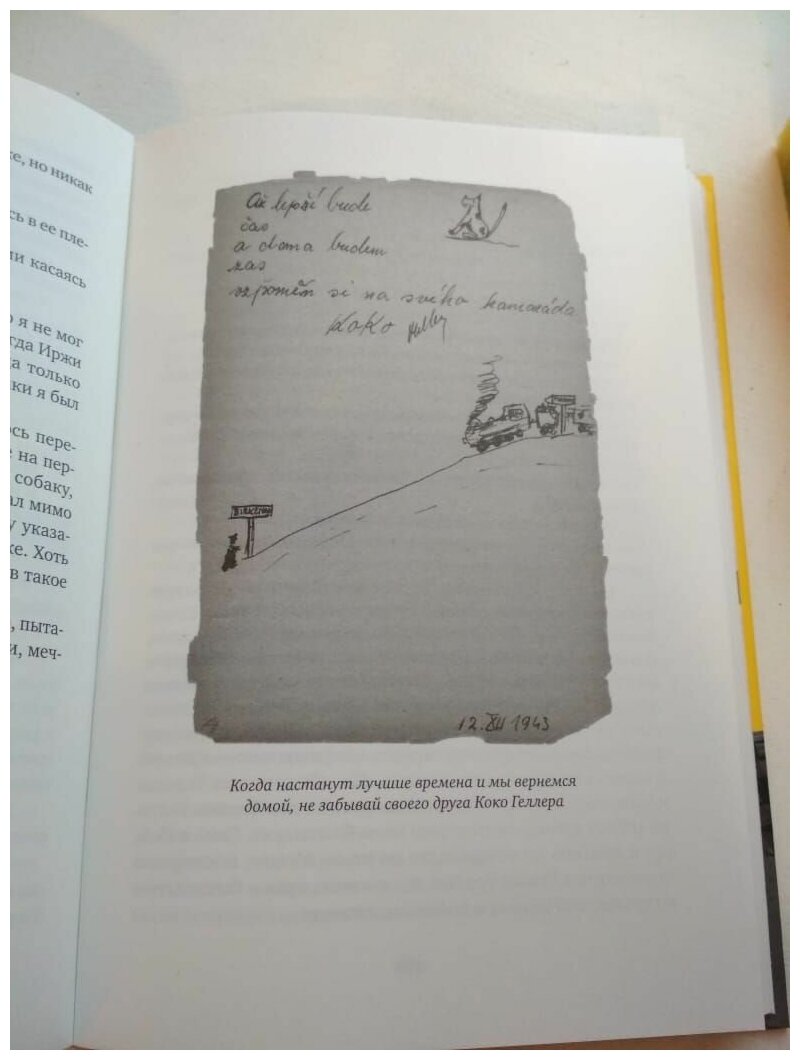 ке, но никак
сь в ее пле-
ни касаясь
о я не мог
гда Иржи
да только
ки я был
ось пере-
е на пер-
собаку,
ал мимо
у указа-
ке. Хоть
в такое
, пыта-
и, меч-
Až lepší bude
čas
a doma budem
zas
vzpomeň si na svého kamaráda
Koko Heller
12. XII 1943
Когда настанут лучшие времена и мы вернемся
домой, не забывай своего друга Коко Геллера